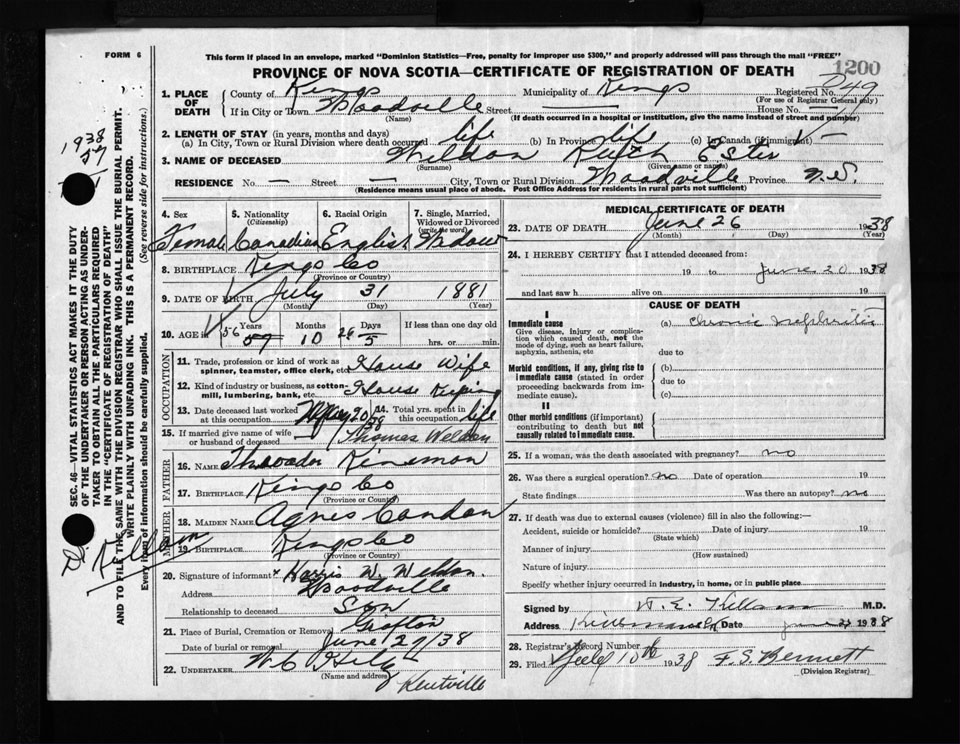 FORM 6
This form if placed in an envelope, marked "Dominion Statistics—Free, penalty for improper use $300," and properly addressed will pass through the mail "FREE"
1200
PROVINCE OF NOVA SCOTIA—CERTIFICATE OF REGISTRATION OF DEATH
1. PLACE OF DEATH
County of Kings Municipality of Kings Registered No. 49
(For use of Registrar General only)
If in City or Town Woodville Street — House No. —
(Name) (If death occurred in a hospital or institution, give the name instead of street and number)
2. LENGTH OF STAY (in years, months and days)
(a) In City, Town or Rural Division where death occurred life (b) In Province life (c) In Canada (if immigrant) —
3. NAME OF DECEASED Weldon Ruth Ester
(Surname) (Given name or names)
RESIDENCE No. — Street — City, Town or Rural Division Woodville Province N.S.
(Residence means usual place of abode. Post Office Address for residents in rural parts not sufficient)
4. Sex Female
5. Nationality (Citizenship) Canadian
6. Racial Origin English
7. Single, Married, Widowed or Divorced (write the word) Widow
8. BIRTHPLACE Kings Co
(Province or Country)
9. DATE OF BIRTH July 31 1881
(Month) (Day) (Year)
10. AGE Years Months Days If less than one day old
56 57 10 26 5 hrs. or min.
OCCUPATION
11. Trade, profession or kind of work as spinner, teamster, office clerk, etc. House Wife
12. Kind of industry or business, as cotton-mill, lumbering, bank, etc. House Keeping
13. Date deceased last worked at this occupation May 20/38
14. Total yrs. spent in this occupation life
15. If married give name of wife or husband of deceased Thomas Weldon
FATHER
16. NAME Theodor Kinsman
17. BIRTHPLACE Kings Co
(Province or Country)
MOTHER
18. MAIDEN NAME Agnes Condon
19. BIRTHPLACE Kings Co
(Province or Country)
20. Signature of informant Harris W. Weldon
Address Woodville
Relationship to deceased Son
21. Place of Burial, Cremation or Removal Grafton
Date of burial or removal June 27/38
22. UNDERTAKER
(Name and address) Kentville
MEDICAL CERTIFICATE OF DEATH
23. DATE OF DEATH June 26 1938
(Month) (Day) (Year)
24. I HEREBY CERTIFY that I attended deceased from:
19 to June 20 1938
and last saw h alive on 19
CAUSE OF DEATH
I
Immediate cause (a) Chronic Nephritis
Give disease, injury or complication which caused death, not the mode of dying, such as heart failure, asphyxia, asthenia, etc due to
Morbid conditions, if any, giving rise to immediate cause (stated in order proceeding backwards from immediate cause). (b)
due to
(c)
II
Other morbid conditions (if important) contributing to death but not causally related to immediate cause.
25. If a woman, was the death associated with pregnancy? no
26. Was there a surgical operation? no Date of operation 19
State findings Was there an autopsy? no
27. If death was due to external causes (violence) fill in also the following:—
Accident, suicide or homicide? Date of injury 19
(State which)
Manner of injury
(How sustained)
Nature of injury
Specify whether injury occurred in industry, in home, or in public place
Signed by Killam M.D.
Address Date June 1938
28. Registrar's Record Number
29. Filed 10th 1938 F. S. Bennett
(Division Registrar)
SEC. 46—VITAL STATISTICS ACT MAKES IT THE DUTY OF THE UNDERTAKER OR PERSON ACTING AS UNDERTAKER TO OBTAIN ALL THE PARTICULARS REQUIRED IN THE "CERTIFICATE OF REGISTRATION OF DEATH" AND TO FILE THE SAME WITH THE DIVISION REGISTRAR WHO SHALL ISSUE THE BURIAL PERMIT.
WRITE PLAINLY WITH UNFADING INK. THIS IS A PERMANENT RECORD.
Every item of information should be carefully supplied. (See reverse side for instructions.)
1938
57
Dr. Killam